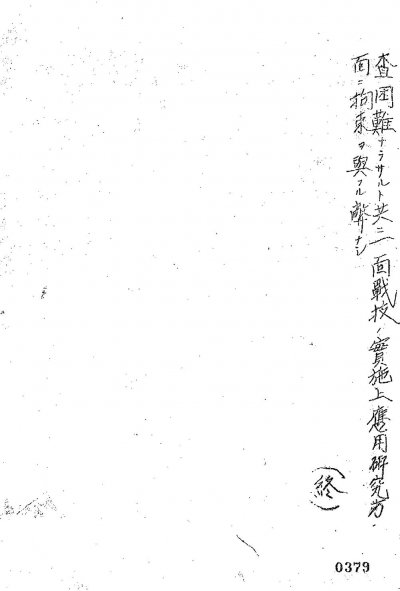 査困難ナラサルト共ニ一面戰技ノ實施上應用研究方
面ニ拘束ヲ與フル弊ナシ
(終)
0379